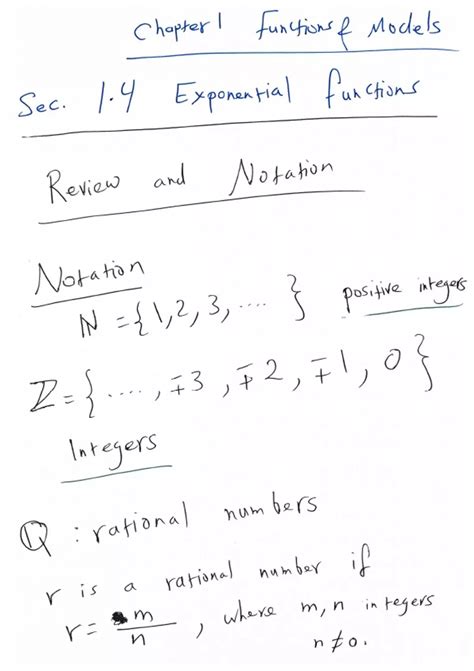 Chapter 1 Functions & Models
Sec. 1.4 Exponential functions
Review and Notation
Notation
ℕ = {1, 2, 3, .... } positive integers
ℤ = { ...., ∓3, ∓2, ∓1, 0 }
Integers
ℚ : rational numbers
r is a rational number if
r = m/n , where m, n integers
n ≠ 0.